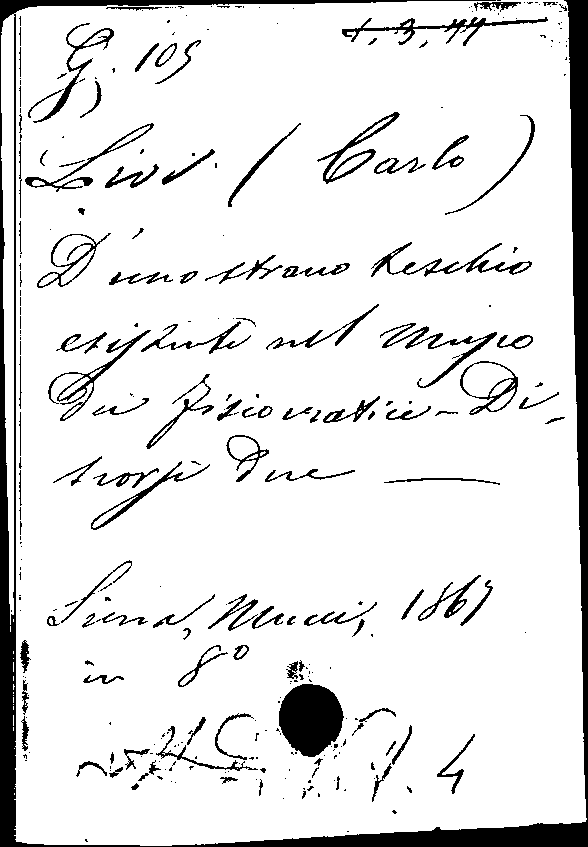 G. 105 1. 3. 44
Livi (Carlo)
D'uno strano teschio
esistente nel Museo
dei fisiocratici - Di-
scorsi due —
Siena, Mucci, 1867
in 8º
4